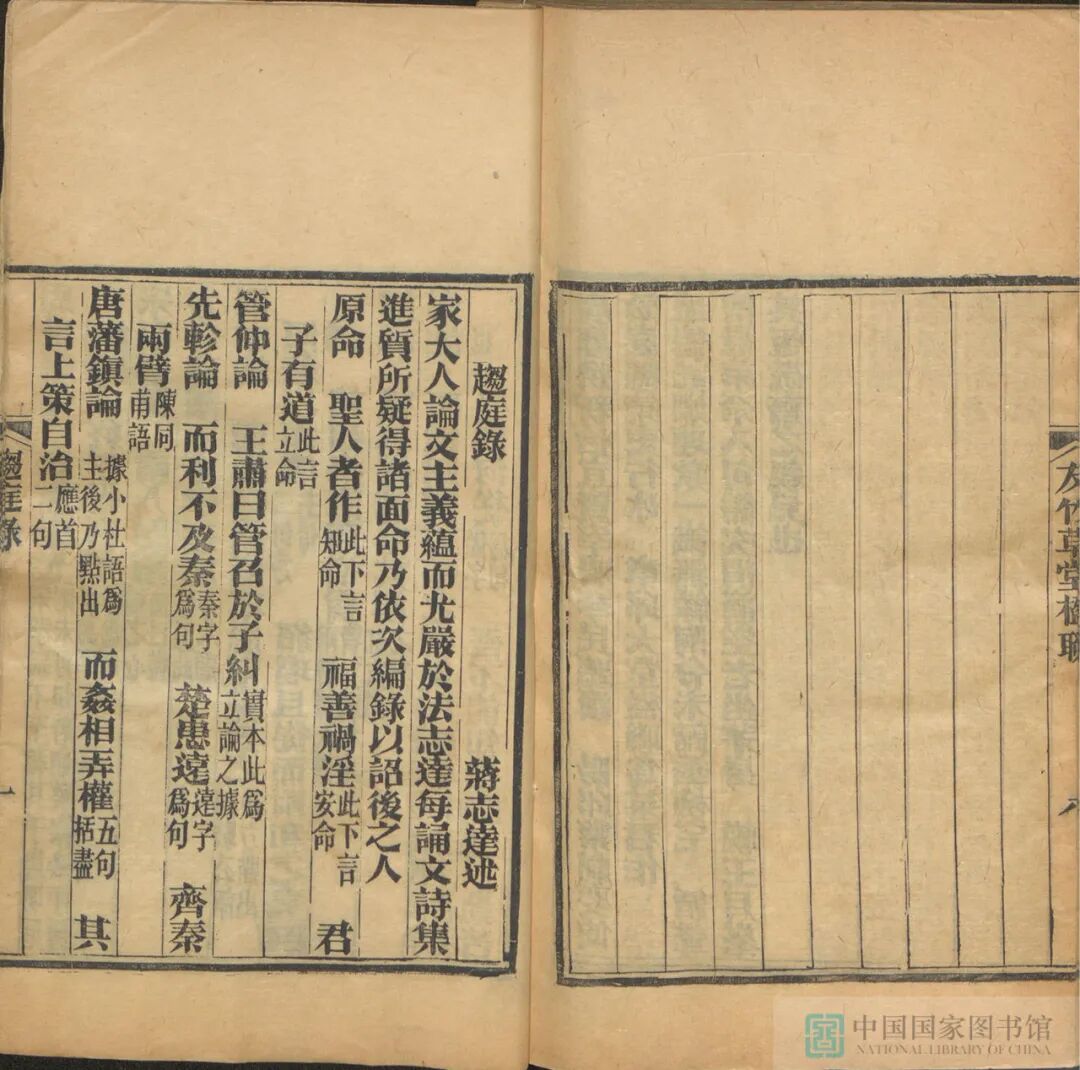 友竹草堂楹聯
八
趨庭錄
蔣志達述
家大人論文主義蘊而尤嚴於法志達每誦文詩集
進質所疑得諸面命乃依次編錄以詔後之人
原命　聖人者作此下言知命　福善禍淫此下言安命　君
子有道此言立命
管仲論　王肅曰管召於子糾實本此為立論之據
先軫論　而利不及秦秦字為句　楚患遠遠字為句　齊秦
兩臂陳同甫語
唐藩鎮論　據小杜語為主後乃點出　而姦相弄權五句括盡　其
言上策自治應首二句
趨庭錄
一
中国国家图书馆
NATIONAL LIBRARY OF CHINA